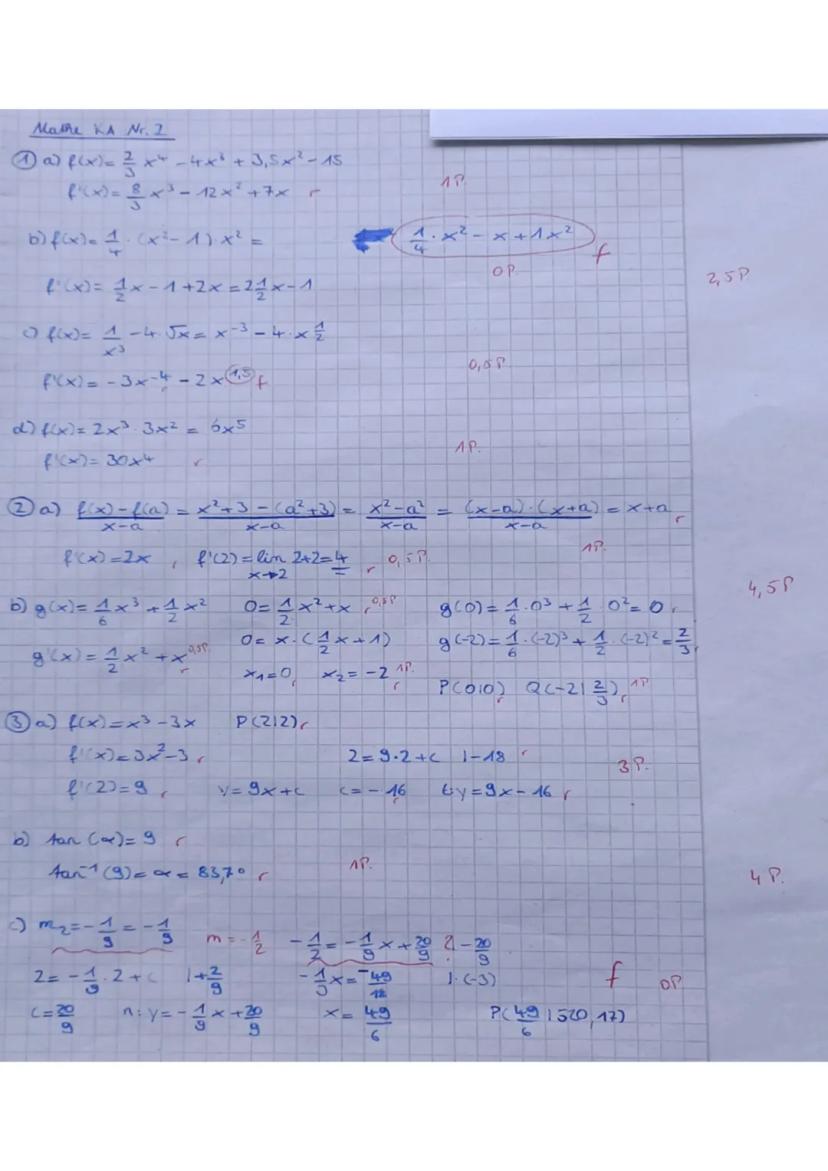 Mathe KA Nr. 2
① a) f(x) = 2/3 x⁴ - 4x³ + 3,5x² - 15
f'(x) = 8/3 x³ - 12x² + 7x r 1P.
b) f(x) = 1/4 · (x² - 1) · x² = 1/4 · x² - x + 1x² f
0P. 2,5P
f'(x) = 1/2 x - 1 + 2x = 2 1/2 x - 1
c) f(x) = 1/x³ - 4 · √x = x⁻³ - 4 · x^1/2
f'(x) = -3x⁻⁴ - 2x^1,5 f 0,5P.
d) f(x) = 2x³ · 3x² = 6x⁵
f'(x) = 30x⁴ r 1P.
② a) f(x) - f(a)/x-a = x²+3 - (a²+3)/x-a = x² - a²/x-a = (x-a) · (x+a)/x-a = x+a r
1P.
f'(x) = 2x , f'(2) = lim x→2 2+2 = 4 r 0,5P.
4,5P
b) g(x) = 1/6 x³ + 1/2 x² 0 = 1/2 x² + x r 0,5P g(0) = 1/6 · 0³ + 1/2 · 0² = 0 r
g'(x) = 1/2 x² + x r 0,5P. 0 = x · (1/2 x + 1) g(-2) = 1/6 · (-2)³ + 1/2 · (-2)² = 2/3 r
x₁ = 0 r x₂ = -2 r 1P. P(0|0) Q(-2|2/3) r 1P
③ a) f(x) = x³ - 3x P(2|2) r
f'(x) = 3x² - 3 r 2 = 9 · 2 + c |-18 r 3P.
f'(2) = 9 r y = 9x + c c = -16 r t: y = 9x - 16 r
b) tan (α) = 9 r
tan⁻¹ (9) = α = 83,7° r 1P.
4P.
c) m₂ = -1/9 = -1/9 m = -1/2 -1/2 = -1/9 x + 20/9 ? |-20/9
2 = -1/9 · 2 + c |+2/9 -1/9 x = -49/18 |·(-3) f 0P
c = 20/9 n: y = -1/9 x + 20/9 x = 49/6 P(49/6 | 520,17)